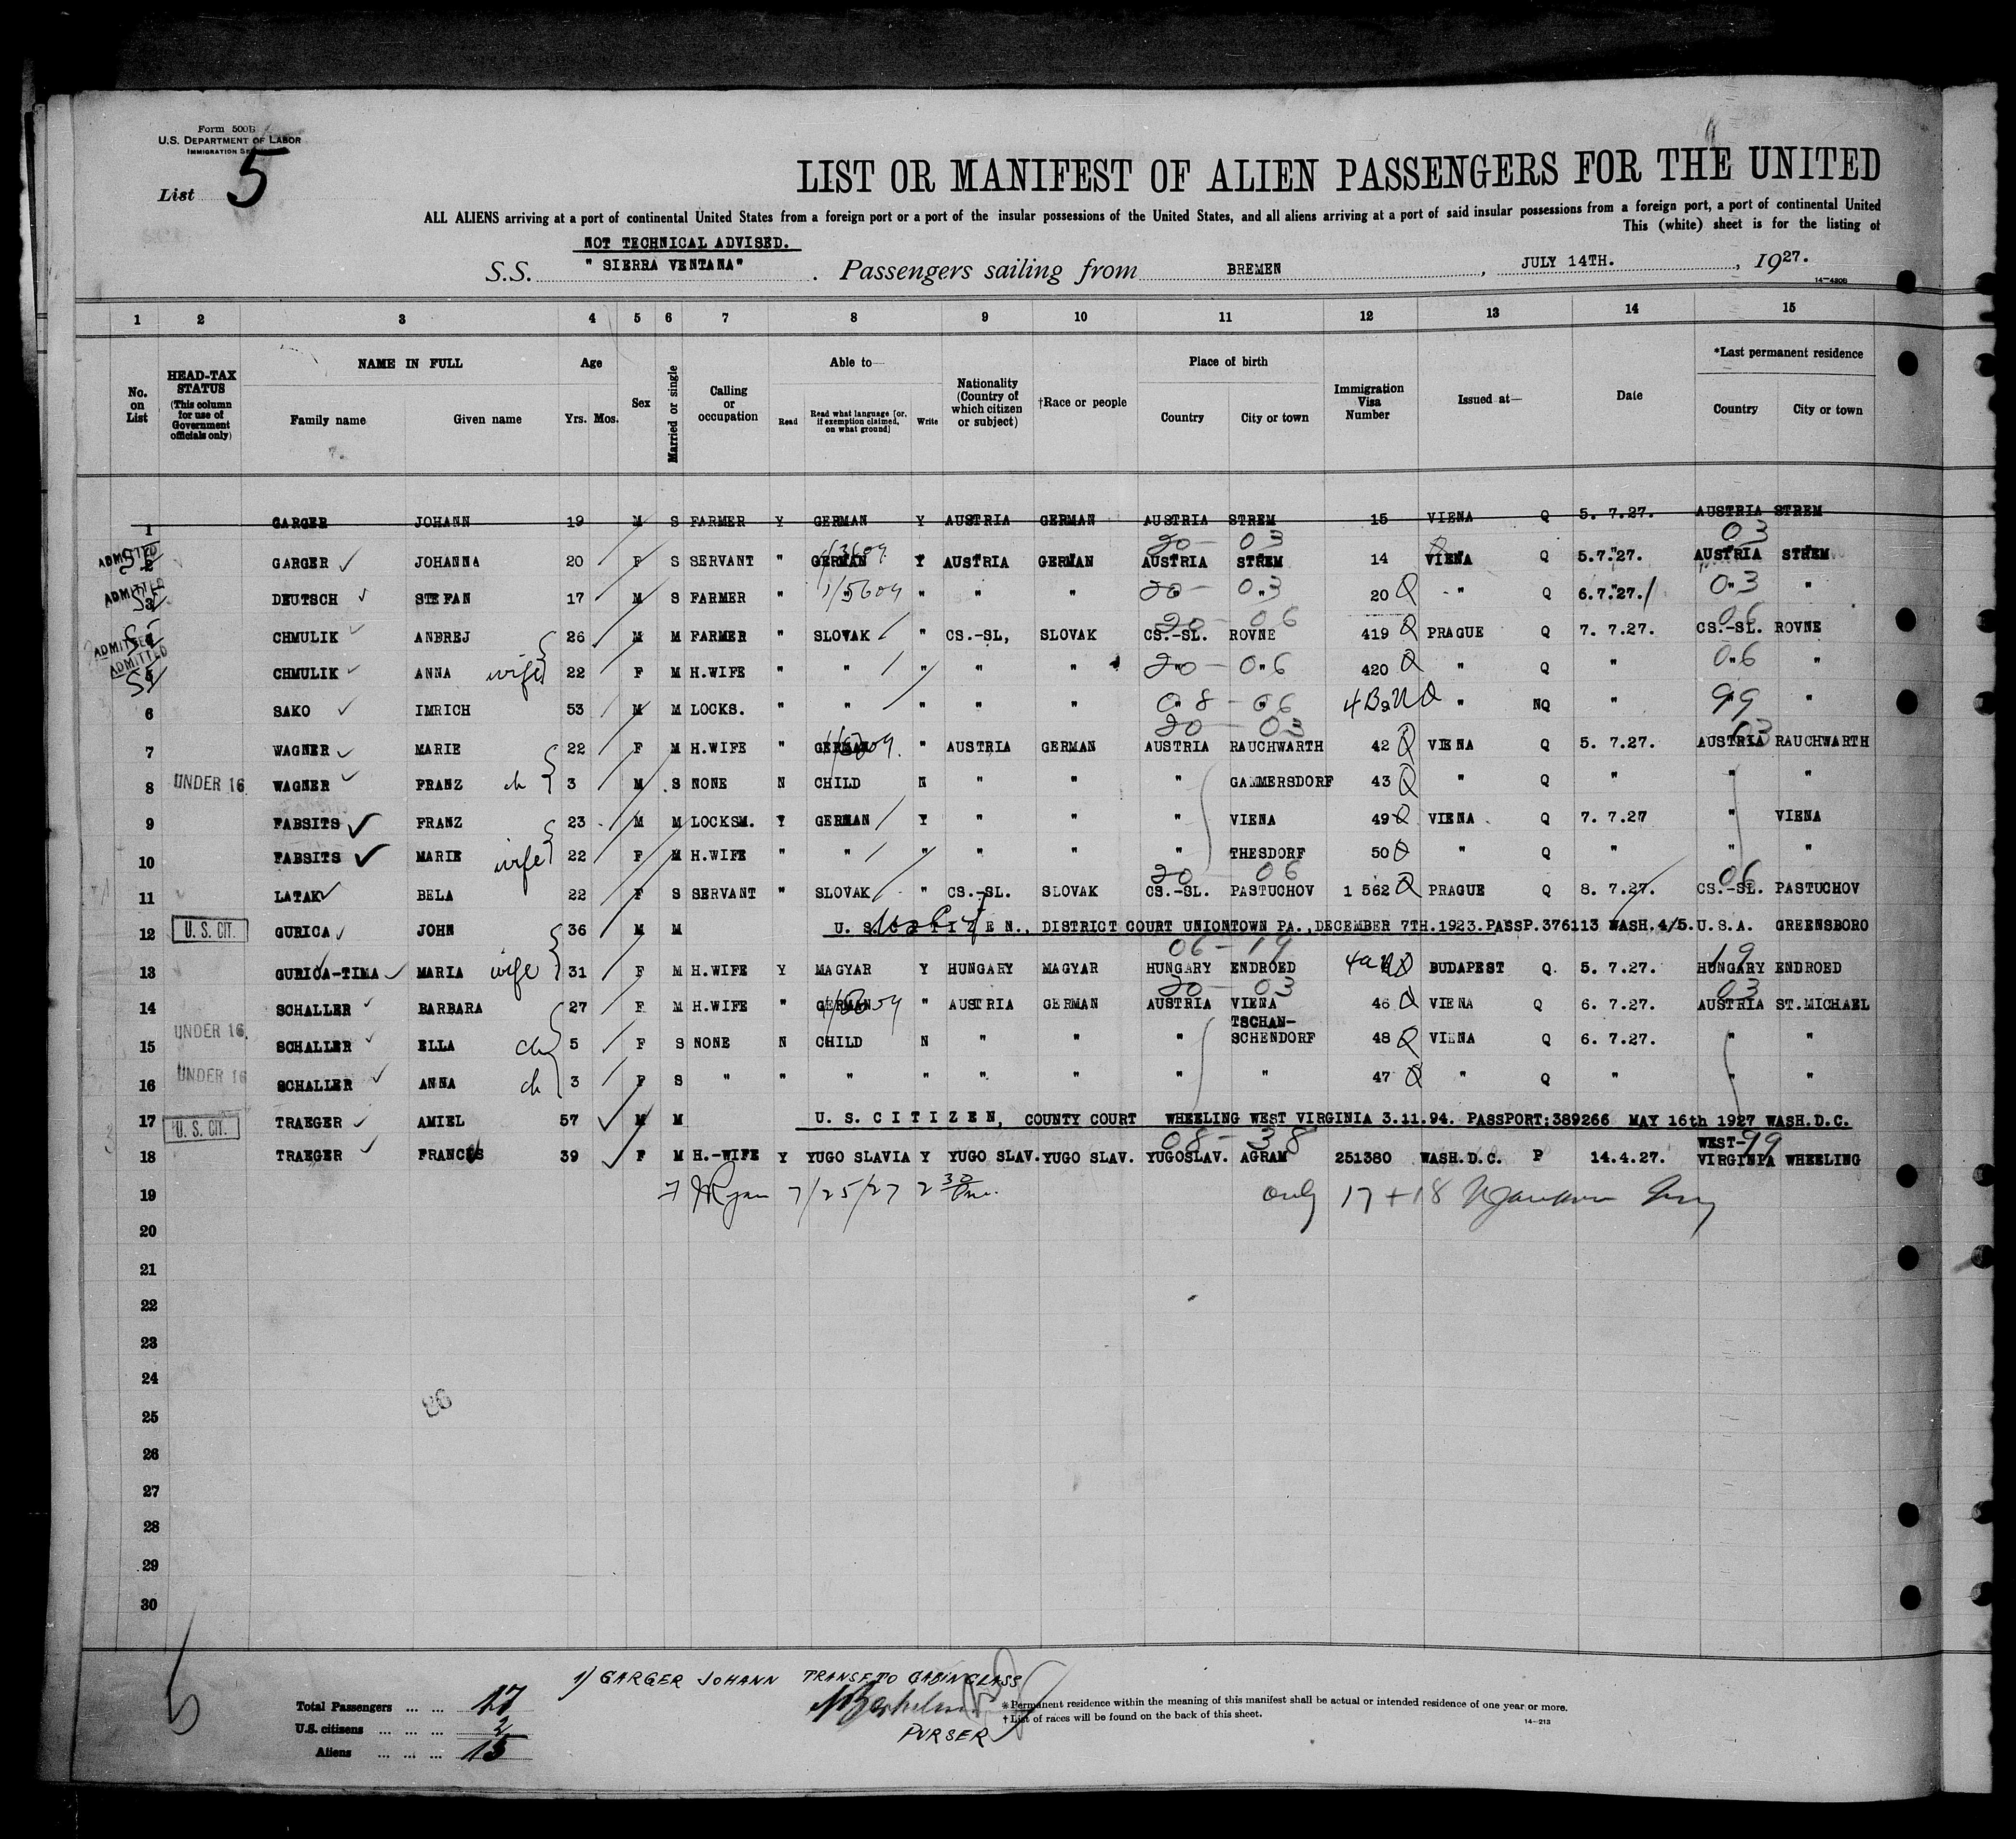 Form 500B
U.S. DEPARTMENT OF LABOR
IMMIGRATION SE
List 5
LIST OR MANIFEST OF ALIEN PASSENGERS FOR THE UNITED
ALL ALIENS arriving at a port of continental United States from a foreign port or a port of the insular possessions of the United States, and all aliens arriving at a port of said insular possessions from a foreign port, a port of continental United
This (white) sheet is for the listing of
NOT TECHNICAL ADVISED.
S.S. " SIERRA VENTANA" . Passengers sailing from BREMEN , JULY 14TH. , 1927.
14—4200
1 2 3 4 5 6 7 8 9 10 11 12 13 14 15
No. on List HEAD-TAX STATUS (This column for use of Government officials only) NAME IN FULL Family name Given name Age Yrs. Mos. Sex Married or single Calling or occupation Able to— Read Read what language [or, if exemption claimed, on what ground] Write Nationality (Country of which citizen or subject) †Race or people Place of birth Country City or town Immigration Visa Number Issued at— Date *Last permanent residence Country City or town
1 GARGER JOHANN 19 M S FARMER Y GERMAN Y AUSTRIA GERMAN AUSTRIA STREM 15 VIENA Q 5. 7.27. AUSTRIA STREM
20 - 03 03
ADMITTED 2 GARGER JOHANNA 20 F S SERVANT " GERMAN Y AUSTRIA GERMAN AUSTRIA STREM 14 VIENA Q 5.7.27. AUSTRIA STREM
ADMITTED 3 DEUTSCH STEFAN 17 M S FARMER " " " " " 20 - 03 20 Q " Q 6.7.27. 03 "
20 - 06 06
ADMITTED 4 CHMULIK ANDREJ 26 M M FARMER " SLOVAK " CS.-SL, SLOVAK CS.-SL. ROVNE 419 Q PRAGUE Q 7. 7.27. CS.-SL. ROVNE
ADMITTED 5 CHMULIK ANNA wife 22 F M H.WIFE " " " " " 20 - 06 420 Q " Q " 06 "
6 SAKO IMRICH 53 M M LOCKS. " " " " " 08 - 06 " NQ " 99 "
20 - 03 03
7 WAGNER MARIE 22 F M H.WIFE " GERMAN " AUSTRIA GERMAN AUSTRIA RAUCHWARTH 42 Q VIENA Q 5. 7.27. AUSTRIA RAUCHWARTH
8 UNDER 16 WAGNER FRANZ ch 3 M S NONE N CHILD N " " " GAMMERSDORF 43 Q " Q " " "
9 FABSITS FRANZ 23 M M LOCKSM. Y GERMAN Y " " " VIENA 49 Q VIENA Q 7. 7.27 " VIENA
10 FABSITS MARIE wife 22 F M H.WIFE " " " " " " THESDORF 50 Q " Q " " "
20 06 06
11 LATAK BELA 22 F S SERVANT " SLOVAK " CS.-SL. SLOVAK CS.-SL. PASTUCHOV 1 562 Q PRAGUE Q 8. 7.27. CS.-SL. PASTUCHOV
12 U. S. CIT. GURICA JOHN 36 M M U. S. C I T I Z E N., DISTRICT COURT UNIONTOWN PA.,DECEMBER 7TH.1923.PASSP.376113 WASH.4/5. U.S.A. GREENSBORO
06 - 19 19
13 GURICA-TIMA MARIA wife 31 F M H.WIFE Y MAGYAR Y HUNGARY MAGYAR HUNGARY ENDROED BUDAPEST Q. 5. 7.27. HUNGARY ENDROED
20 - 03 03
14 SCHALLER BARBARA 27 F M H.WIFE " GERMAN " AUSTRIA GERMAN AUSTRIA VIENA 46 Q VIENA Q 6. 7.27. AUSTRIA ST.MICHAEL
15 UNDER 16 SCHALLER ELLA ch 5 F S NONE N CHILD N " " " TSCHAN-SCHENDORF 48 Q VIENA Q 6. 7.27. " "
16 UNDER 16 SCHALLER ANNA ch 3 F S " " " " " " " " 47 Q " Q " " "
17 U. S. CIT. TRAEGER AMIEL 57 M M U. S. C I T I Z E N, COUNTY COURT WHEELING WEST VIRGINIA 3.11.94. PASSPORT:389266 MAY 16th 1927 WASH.D.C.
08 - 38 99
18 TRAEGER FRANCES 39 F M H.-WIFE Y YUGO SLAVIA Y YUGO SLAV. YUGO SLAV. YUGOSLAV. AGRAM 251380 WASH.D.C. P 14.4.27. WEST-VIRGINIA WHEELING
19 Ryan 7/25/27 2 30 only 17 + 18
20
21
22
23
24
25
26
27
28
29
30
1) GARGER JOHANN TRANSF TO CABIN CLASS
PURSER
Total Passengers ... ... 17
U.S. citizens ... ... ... 2
Aliens ... ... ... 15
*Permanent residence within the meaning of this manifest shall be actual or intended residence of one year or more.
†List of races will be found on the back of this sheet.
14—213